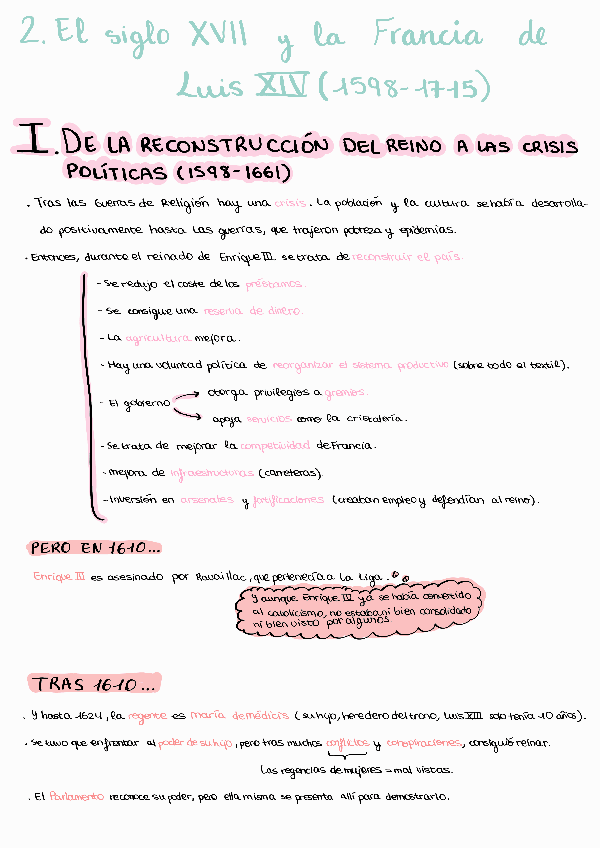 2. El siglo XVII y la Francia de
Luis XIV (1598-1715)
I. DE LA RECONSTRUCCIÓN DEL REINO A LAS CRISIS
POLÍTICAS (1598-1661)
. Tras las Guerras de Religión hay una crisis. La población y la cultura se había desarrolla-
do positivamente hasta las guerras, que trajeron pobreza y epidemias.
. Entonces, durante el reinado de Enrique IV. se trata de reconstruir el país.
- Se redujo el coste de los préstamos.
- Se consigue una reserva de dinero.
- La agricultura mejora.
- Hay una voluntad política de reorganizar el sistema productivo (sobre todo el textil).
- El gobierno
otorga privilegios a gremios.
apoya servicios como la cristalería.
- Se trata de mejorar la competividad de Francia.
- Mejora de infraestructuras (carreteras).
- Inversión en arsenales y fortificaciones (creaban empleo y defendían al reino).
PERO EN 1610...
Enrique IV es asesinado por Ravaillac, que pertenecía a La Liga.
Y aunque Enrique IV ya se había convertido
al catolicismo, no estaba ni bien consolidado
ni bien visto por algunos.
TRAS 1610...
. Y hasta 1624, la regente es María de Médicis (su hijo, heredero del trono, Luis XIII solo tenía 10 años).
. Se tuvo que enfrentar al poder de su hijo, pero tras muchos conflictos y conspiraciones, consiguió reinar.
Las regencias de mujeres = mal vistas.
. El Parlamento reconoce su poder, pero ella misma se presenta allí para demostrarlo.